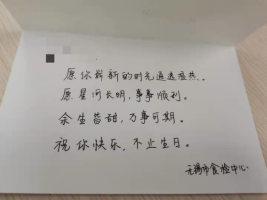 愿你在新的时光通透温热。
愿星河长明，事事顺利。
余生皆甜，万事可期。
祝你快乐，不止生日。
无锡市食检中心